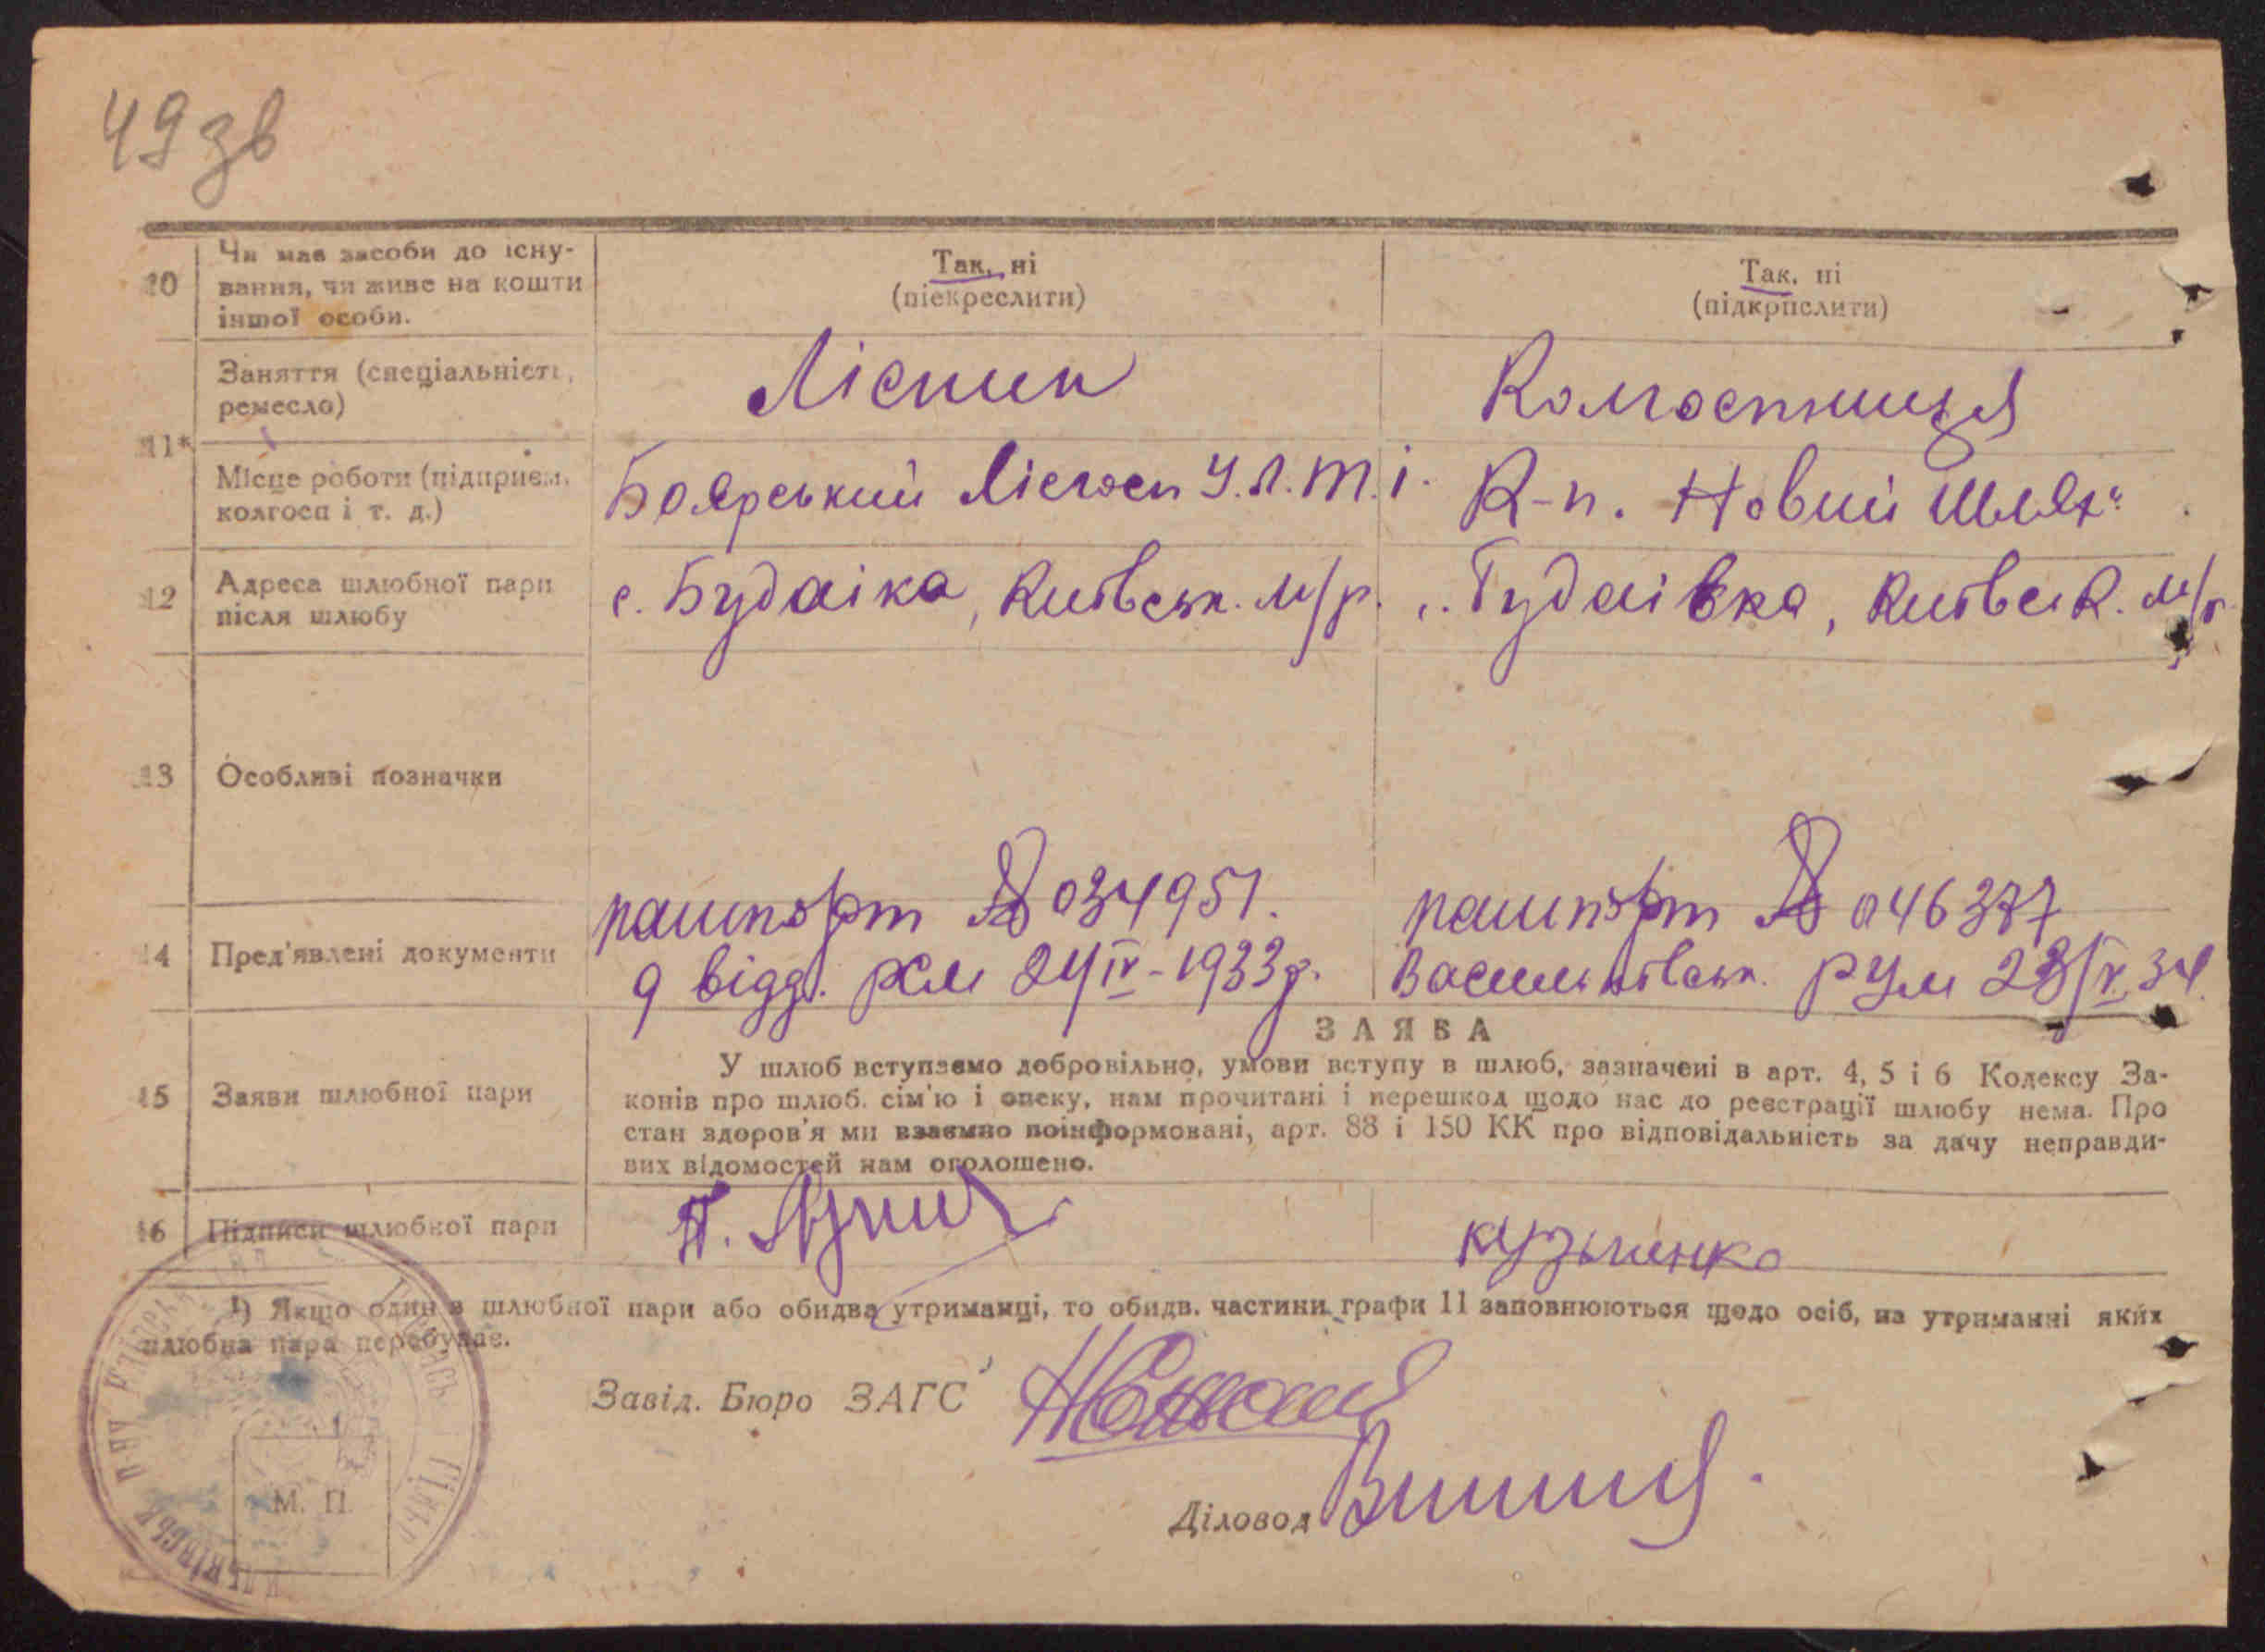 49 зв
10
Чи має засоби до існу-
вання, чи живе на кошти
іншої особи.
Так, ні
(піекреслити)
Так, ні
(підкрпслити)
11*
Заняття (спеціальність,
ремесло)
Лісник
Колгоспниця
Місце роботи (підприєм.
колгосп і т. д.)
Боярський Лісгосп У.Л.Т.І.
К-п. Новий Шлях"
12
Адреса шлюбної пари
після шлюбу
с. Будаіка, Київськ. м/р.
с. Будаівка, Київськ. м/р.
13
Особливі позначки
14
Пред'явлені документи
пашпорт 034951.
9 відд. РСМ 24/IV-1933 р.
пашпорт 046377
Васильківськ. РУМ 23/IV 34
15
Заяви шлюбної пари
ЗАЯВА
У шлюб вступаємо добровільно, умови вступу в шлюб, зазначені в арт. 4, 5 і 6 Кодексу За-
конів про шлюб. сім'ю і опеку, нам прочитані і перешкод щодо нас до реєстрації шлюбу нема. Про
стан здоров'я ми взаємно поінформовані, арт. 88 і 150 КК про відповідальність за дачу неправди-
вих відомостей нам оголошено.
16
Підписи шлюбної пари
кузьменко
1) Якщо один з шлюбної пари або обидва утриманці, то обидв. частини графи 11 заповнюються щодо осіб, на утриманні яких
шлюбна пара перебуває.
Завід. Бюро ЗАГС
М. П.
Діловод